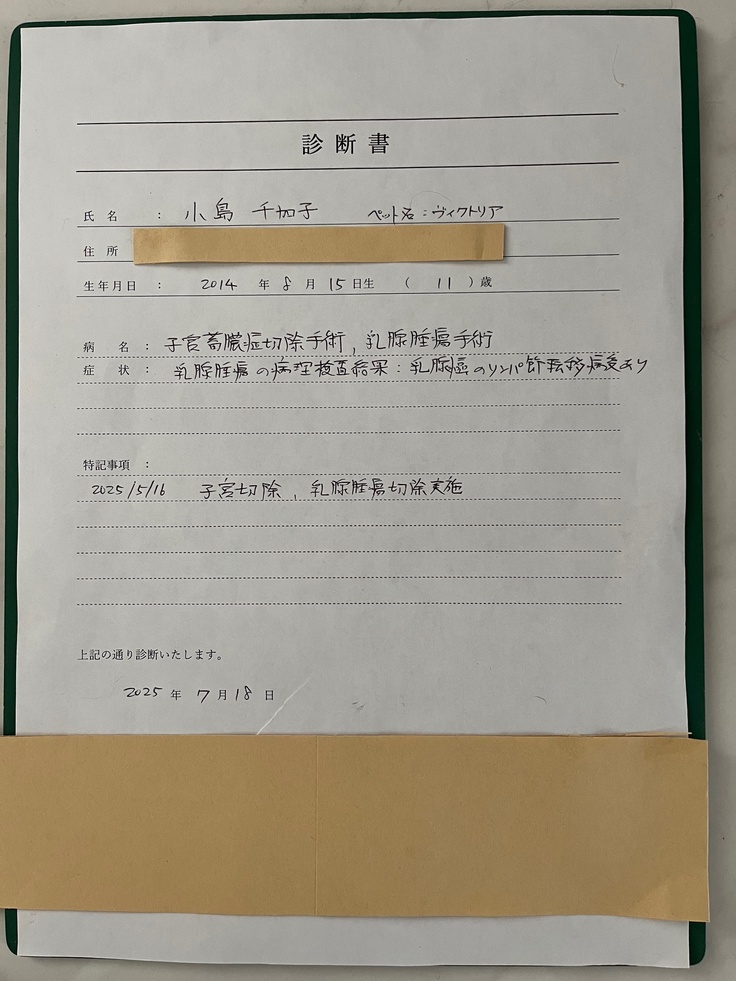 診断書
氏名 : 小島 千加子 ペット名:ヴィクトリア
住所
生年月日 : 2014 年 8 月 15 日生 ( 11 ) 歳
病名 : 子宮蓄膿症切除手術, 乳腺腫瘍手術
症状 : 乳腺腫瘍の病理検査結果:乳腺癌のリンパ節転移病変あり
特記事項 :
2025/5/16 子宮切除, 乳腺腫瘍切除実施
上記の通り診断いたします。
2025 年 7 月 18 日